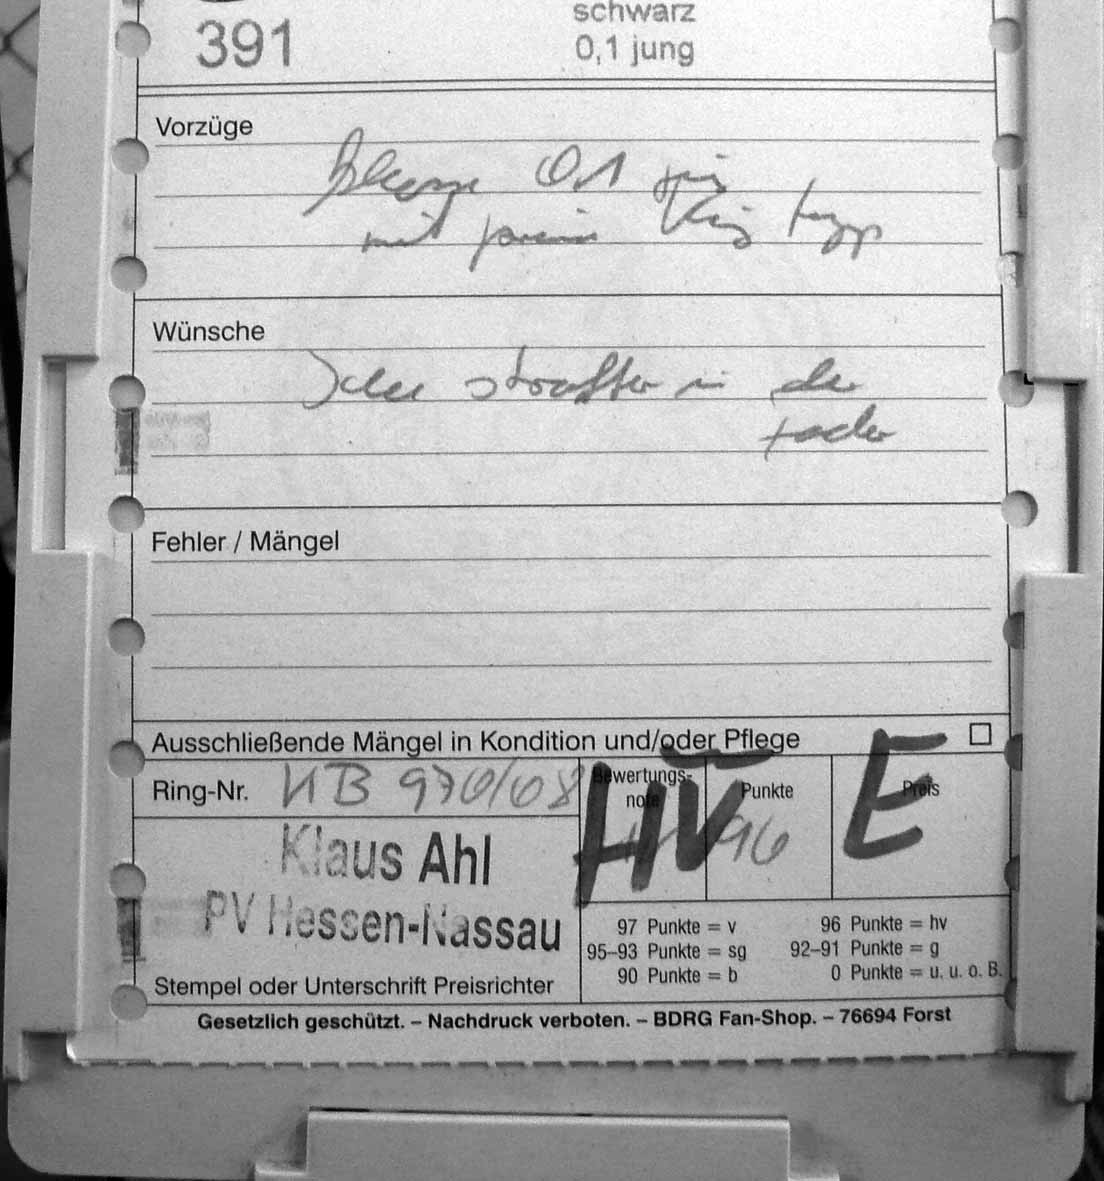 391
schwarz
0,1 jung
Vorzüge
0,1
mit
Wünsche
straffer in der
Feder
Fehler / Mängel
Ausschließende Mängel in Kondition und/oder Pflege
Ring-Nr.
Bewertungs-
note
Punkte
Preis
HV
96
E
Klaus Ahl
PV Hessen-Nassau
97 Punkte = v
96 Punkte = hv
95–93 Punkte = sg
92–91 Punkte = g
90 Punkte = b
0 Punkte = u. u. o. B.
Stempel oder Unterschrift Preisrichter
Gesetzlich geschützt. – Nachdruck verboten. – BDRG Fan-Shop. – 76694 Forst